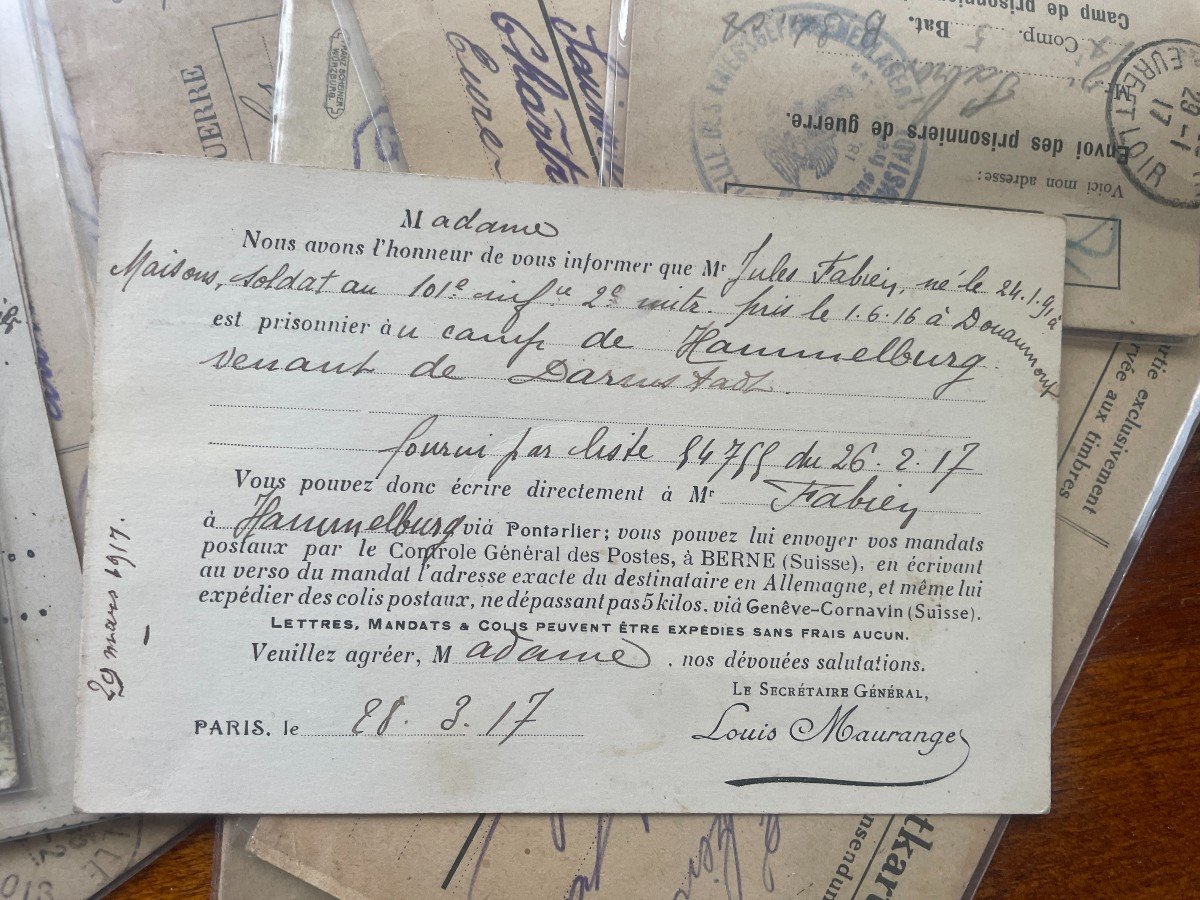 Madame
Nous avons l'honneur de vous informer que Mr Jules Fabien, né le 24.1.91 à
Maisons, soldat au 101e infie 2e mitr. pris le 1.6.16 à Douaumont
est prisonnier àu camp de Hammelburg
venant de Darmstadt.
fourni par liste 54755 du 26.2.17
Vous pouvez donc écrire directement à Mr Fabien
à Hammelburg viâ Pontarlier; vous pouvez lui envoyer vos mandats
postaux par le Controle Général des Postes, à BERNE (Suisse), en écrivant
au verso du mandat l'adresse exacte du destinataire en Allemagne, et même lui
expédier des colis postaux, ne dépassant pas 5 kilos. viâ Genêve-Cornavin (Suisse).
LETTRES, MANDATS & COLIS PEUVENT ÊTRE EXPÉDIES SANS FRAIS AUCUN.
Veuillez agréer, Madame, nos dévouées salutations.
LE SECRÉTAIRE GÉNÉRAL,
PARIS, le 28.3.17
Louis Maurange
29 mars 1917.
GUERRE
FRANZ SCHEINER
WÜRZBURG
Chârtr
Eure
Camp de prisonnie
Comp. 5 Bat.
Envoi des prisonniers de guerre.
Voici mon adresse:
EURE-ET-LOIR
29-1
17
rtie exclusivement
rvée aux timbres
tkar
nsendun